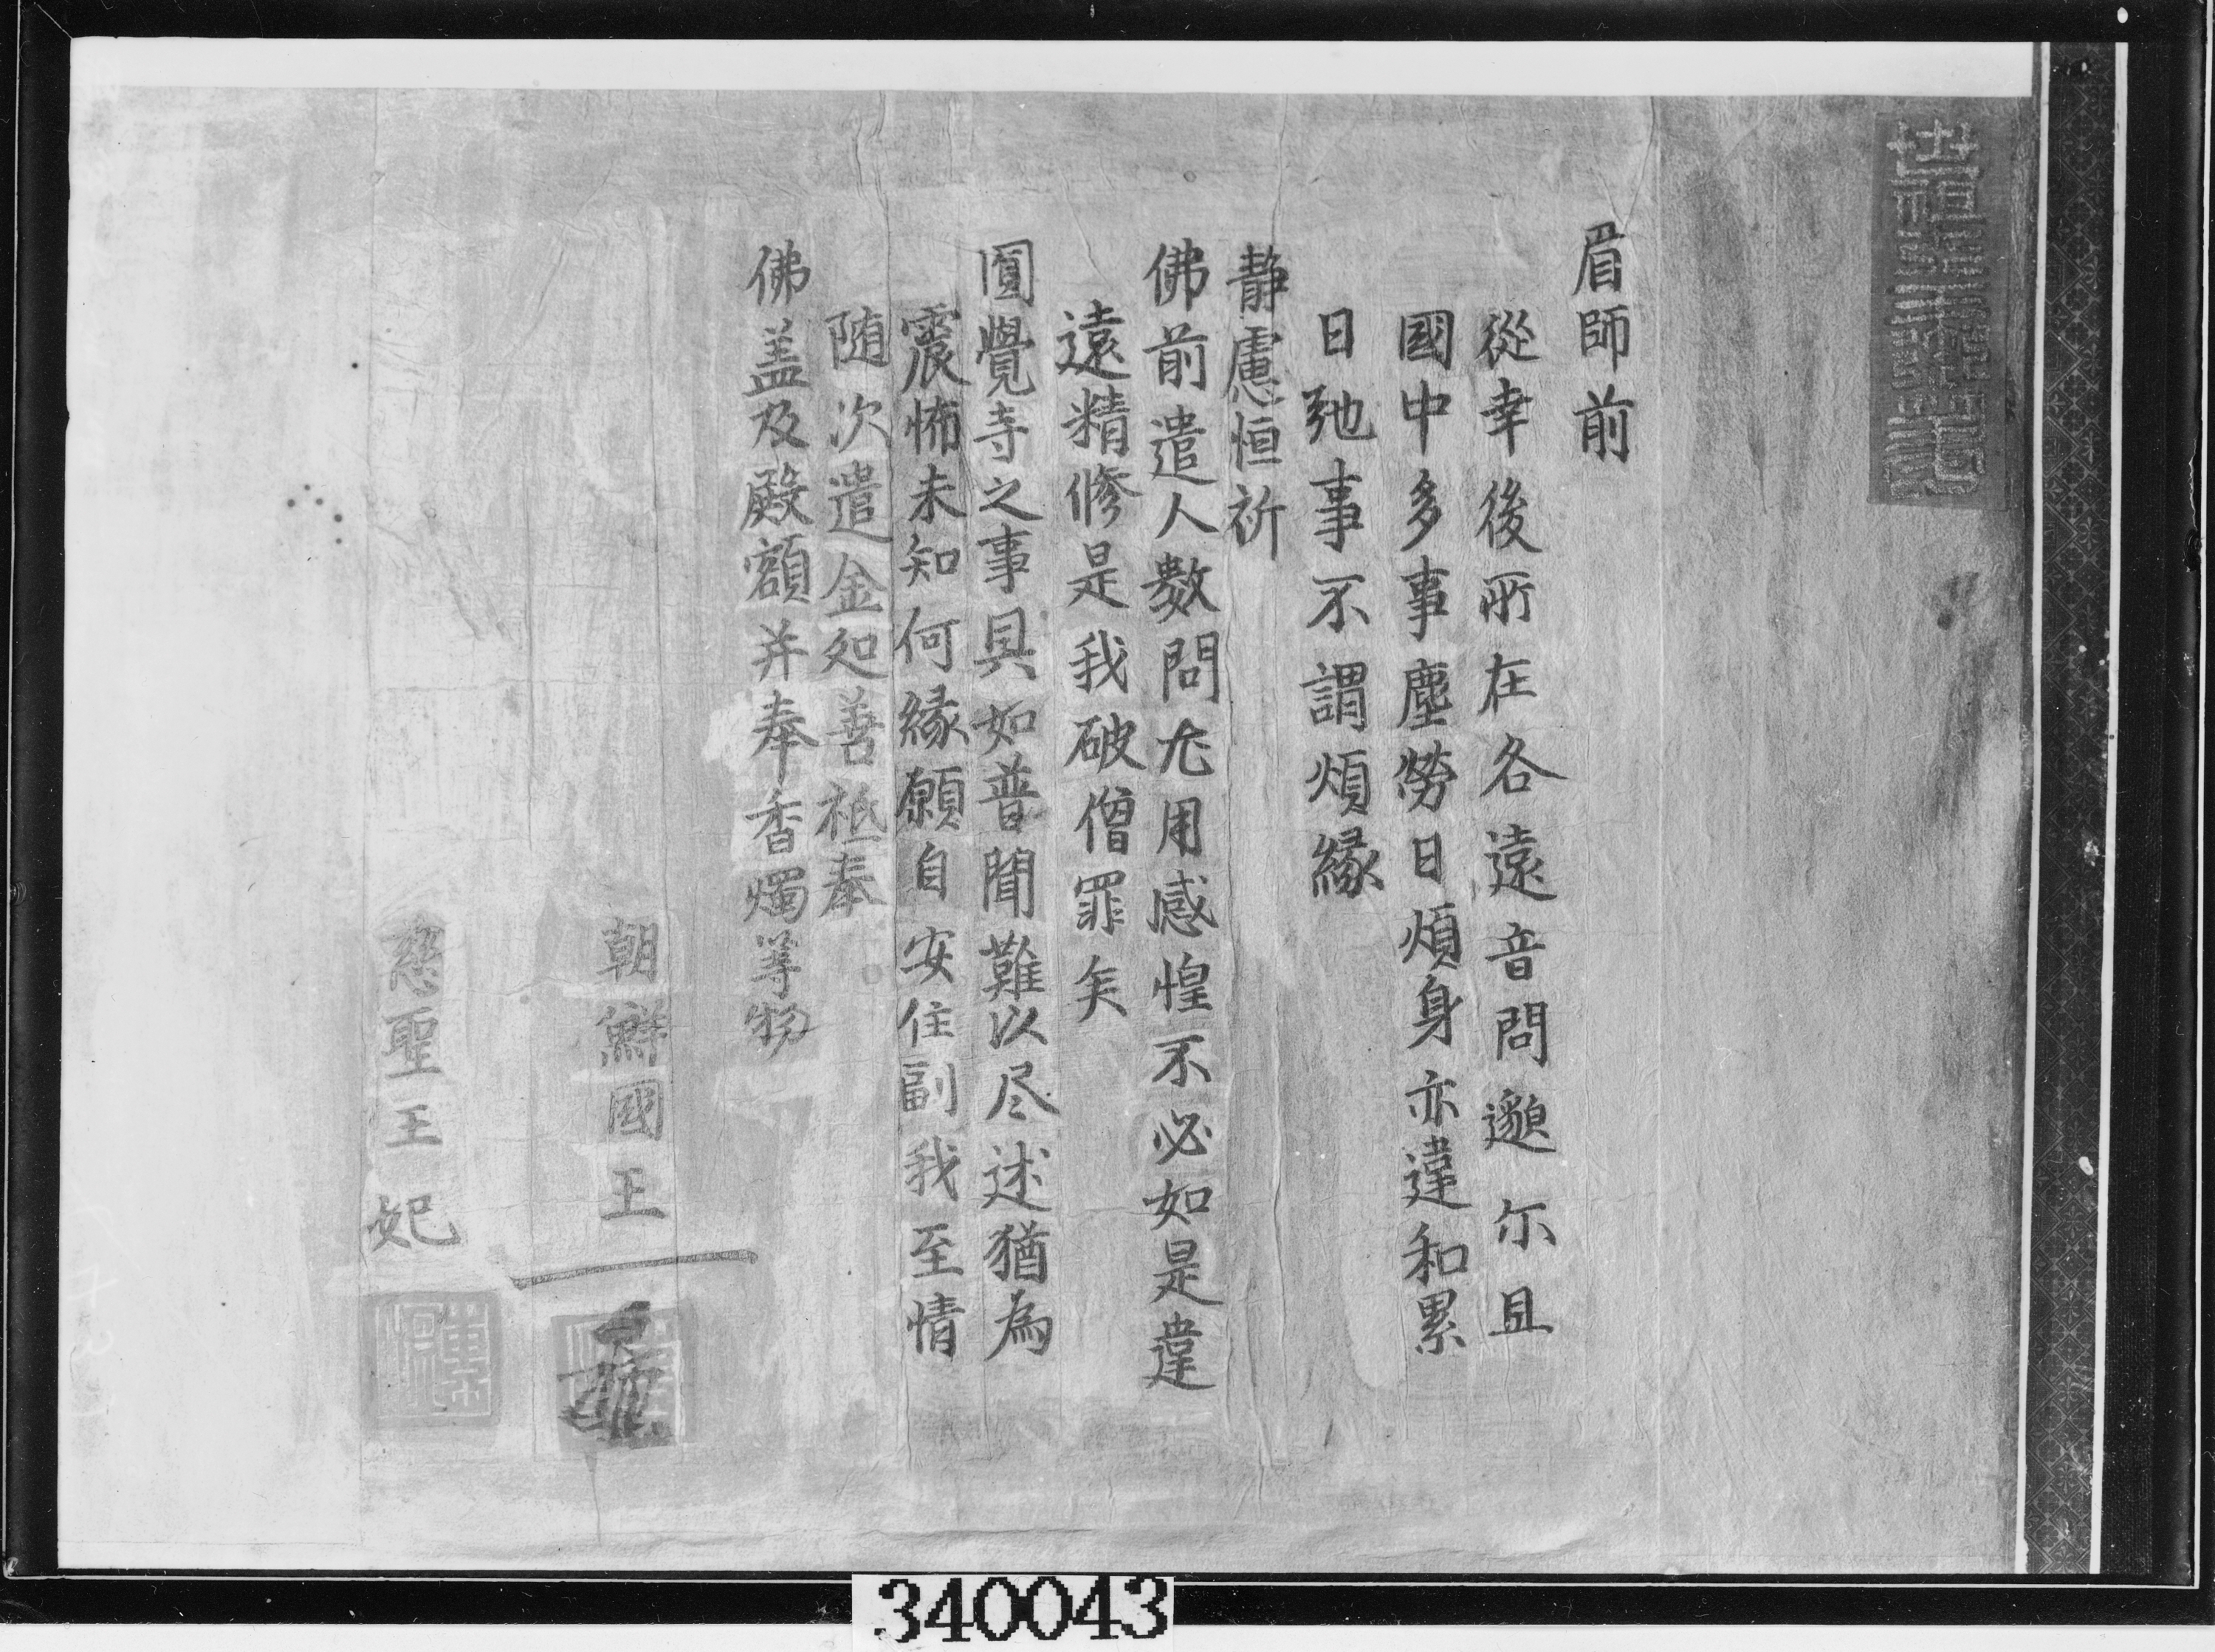 眉師前
從幸後所在各遠音問邈尒且
國中多事塵勞日煩身亦違和累
日弛事不謂煩緣
静慮恒祈
佛前遣人數問尤用感惶不必如是違
遠精修是我破僧罪矣
圓覺寺之事具如普聞難以尽述猶為
震怖未知何緣願自安住副我至情
随次遣金処善祗奉
佛盖及殿額并奉香燭等物
朝鮮國王
慈聖王妃
340043